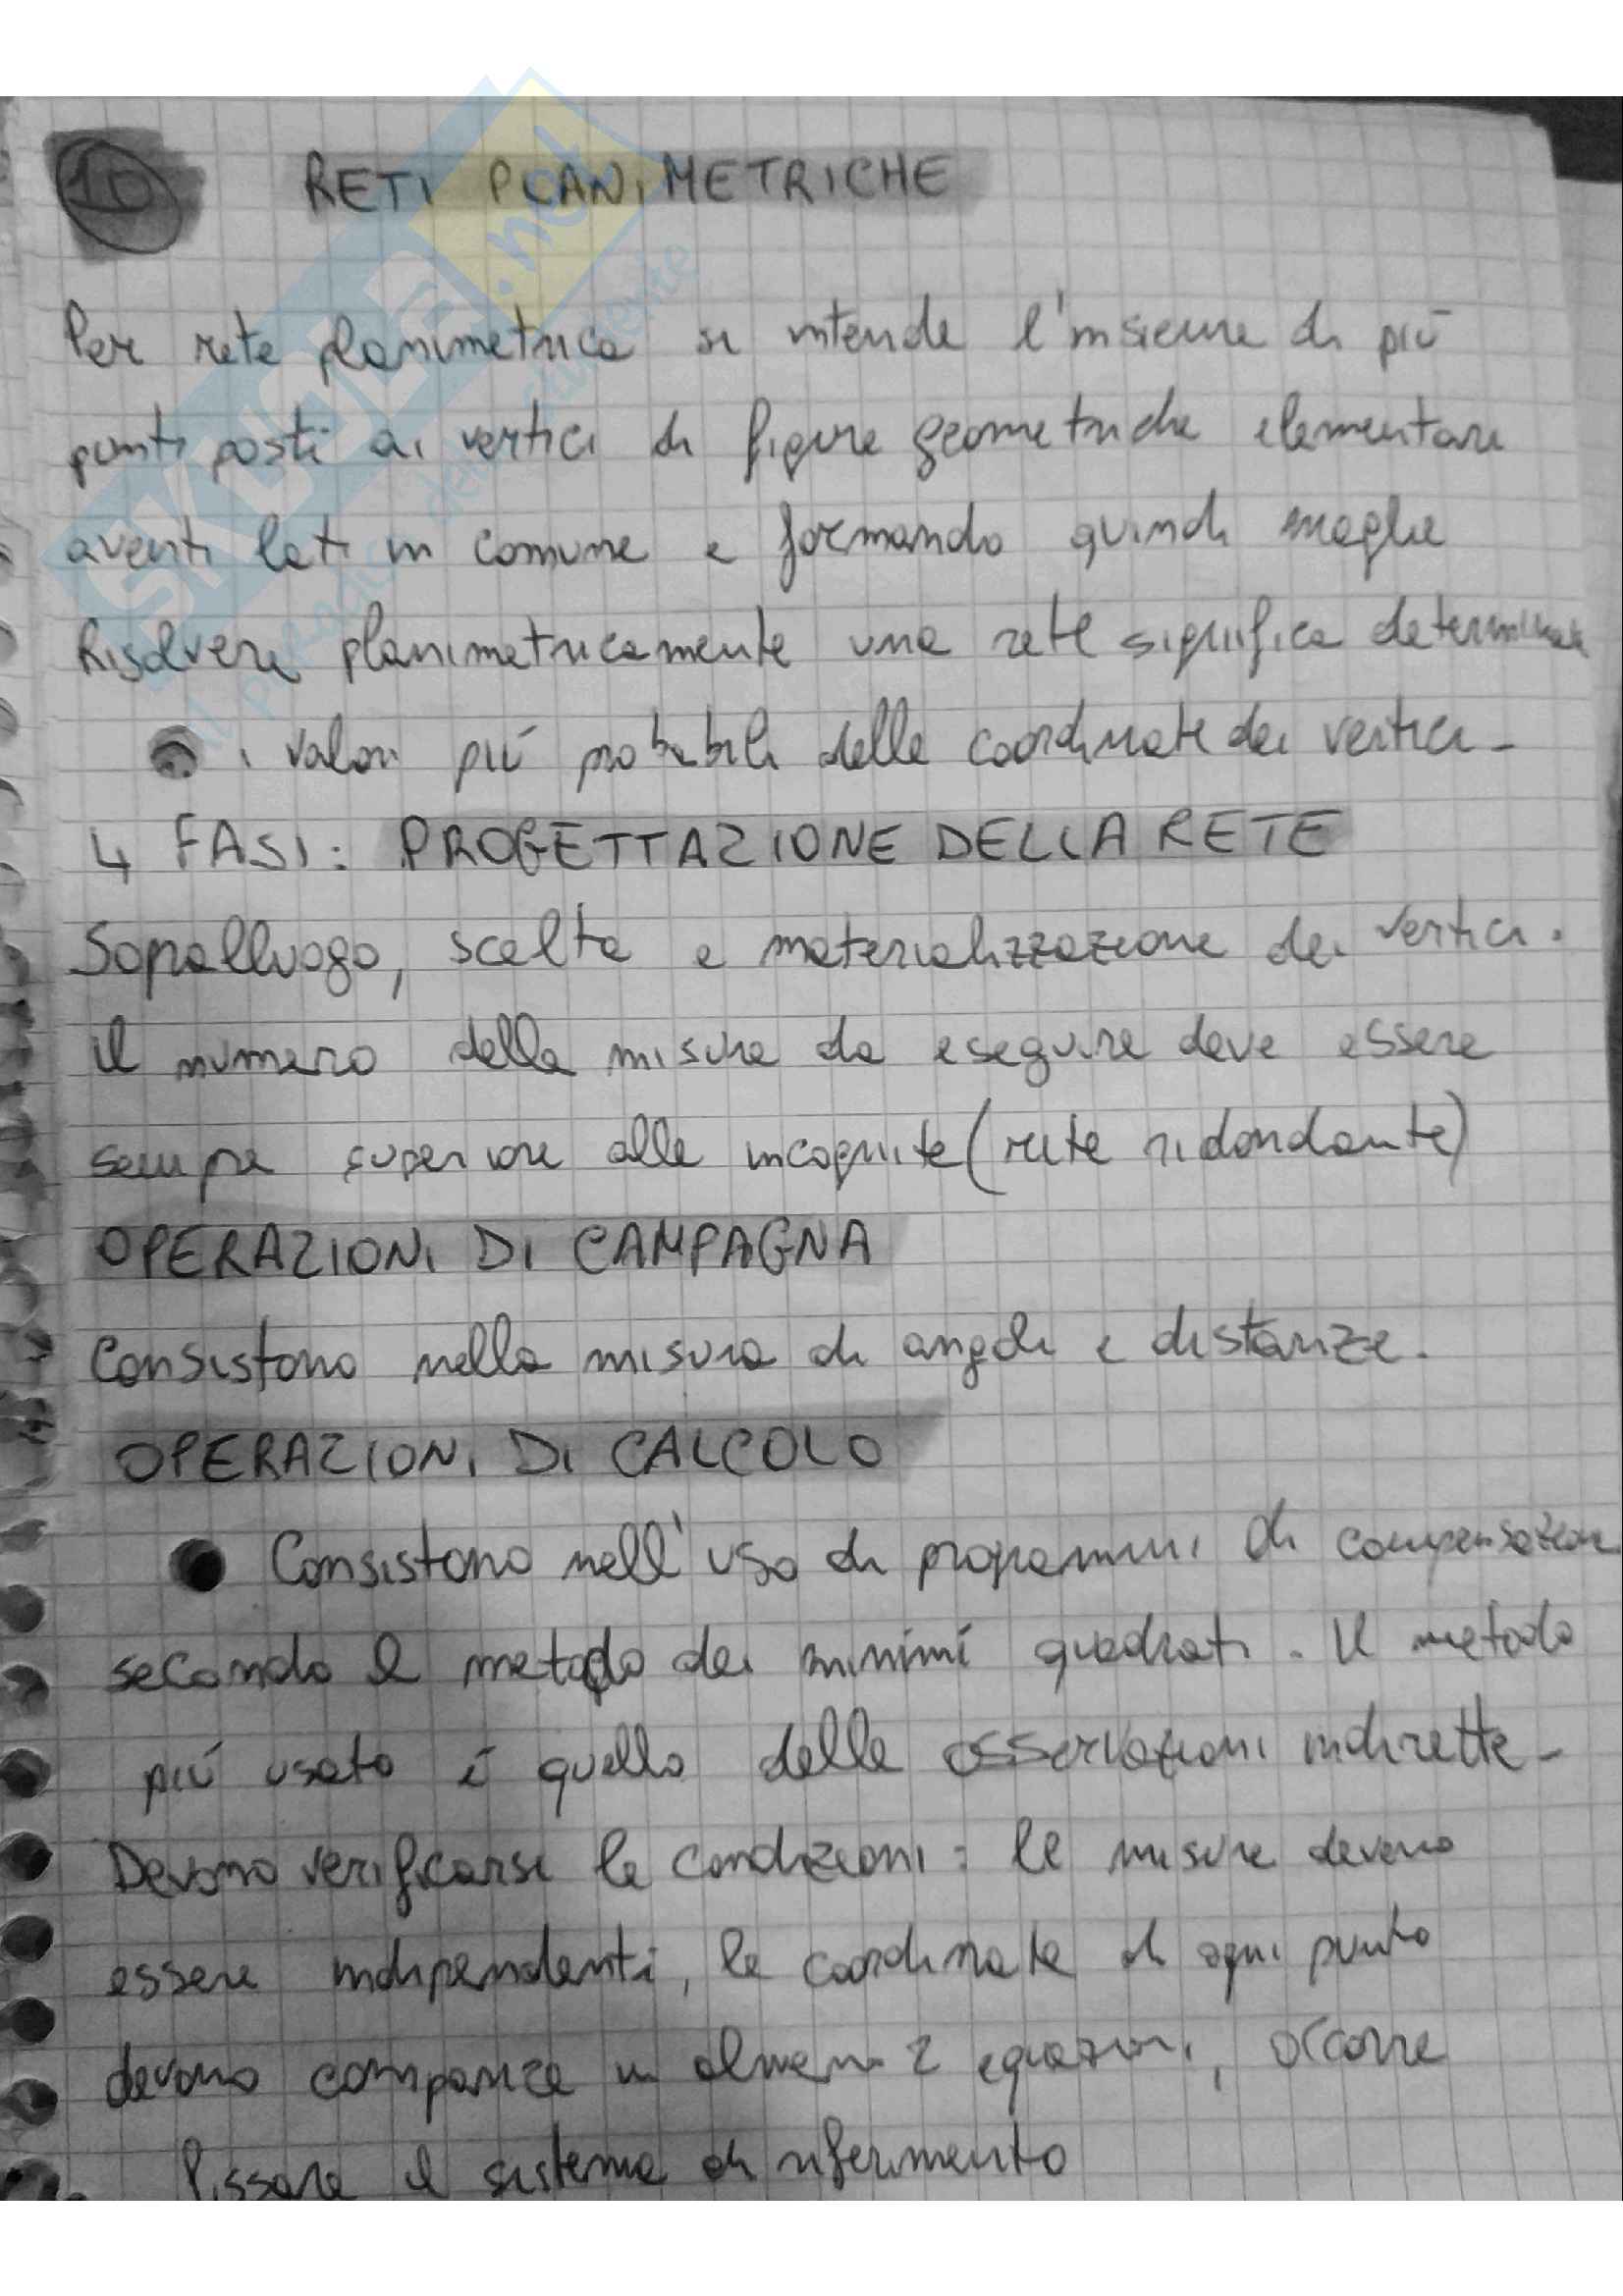 10 RETI PLANIMETRICHE
Per rete planimetrica si intende l'insieme di più
punti posti ai vertici di figure geometriche elementari
aventi lati in comune e formando quindi maglie
Risolvere planimetricamente una rete significa determinare
i valori più probabili delle coordinate dei vertici-
4 FASI: PROGETTAZIONE DELLA RETE
Sopralluogo, scelta e materializzazione dei vertici.
il numero delle misure da eseguire deve essere
sempre superiore alle incognite (rete ridondante)
OPERAZIONI DI CAMPAGNA
Consistono nella misura di angoli e distanze.
OPERAZIONI DI CALCOLO
Consistono nell'uso di programmi di compensazione
secondo il metodo dei minimi quadrati. Il metodo
più usato è quello delle osservazioni indirette-
Devono verificarsi le condizioni: le misure devono
essere indipendenti, le coordinate di ogni punto
devono comparire in almeno 2 equazioni, occorre
fissare il sistema di riferimento
SKUOLA.net